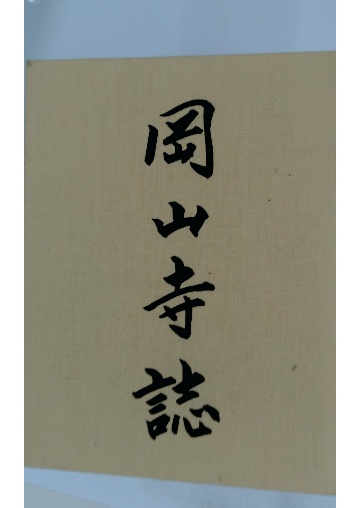 岡山寺誌